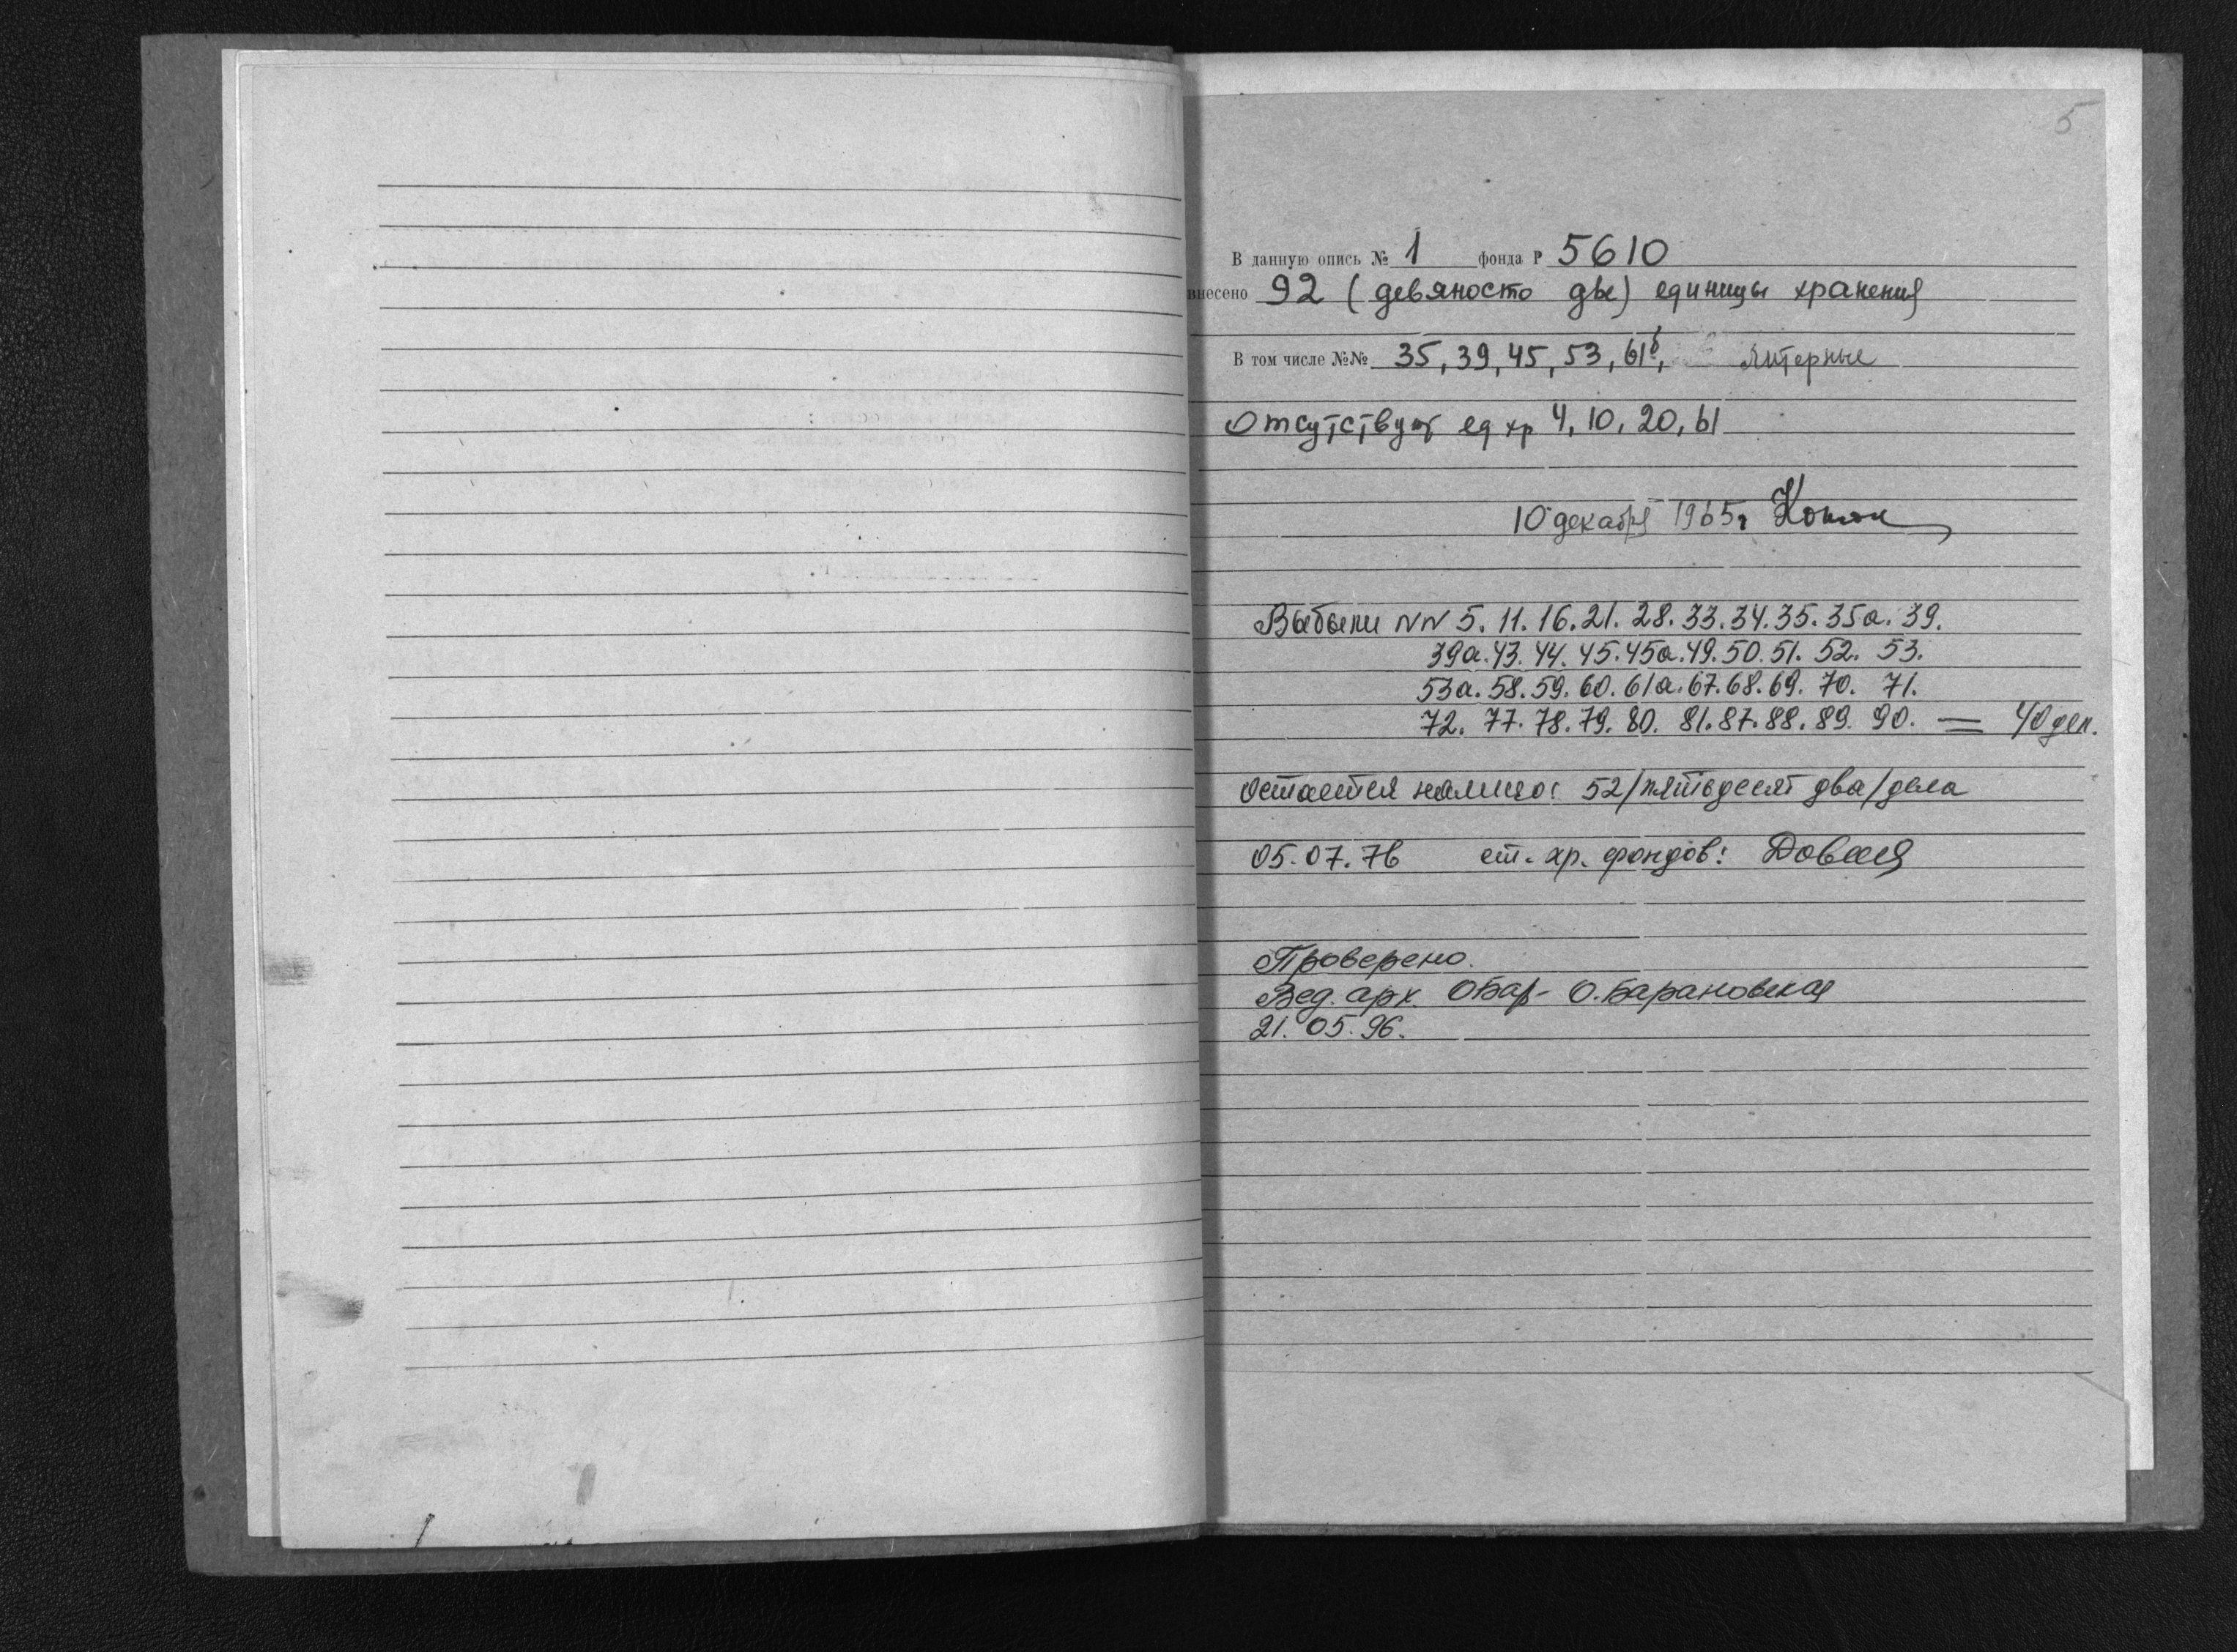 5
В данную опись № 1 фонда Р 5610
внесено 92 (девяносто две) единицы хранения
В том числе №№ 35, 39, 45, 53, 61б, литерные
Отсутствуют ед хр 4, 10, 20, 61
10 декабря 1965 г
Выбыли NN 5. 11. 16. 21. 28. 33. 34. 35. 35а. 39.
39а. 43. 44. 45. 45а. 49. 50. 51. 52. 53.
53а. 58. 59. 60. 61а. 67. 68. 69. 70. 71.
72. 77. 78. 79. 80. 81. 87. 88. 89. 90. — 40 дел.
Остается налицо: 52 /пятьдесят два/ дела
05.07.76 ст. хр. фондов:
Проверено.
Вед. арх. ОБар- О. Барановская
21.05.96.